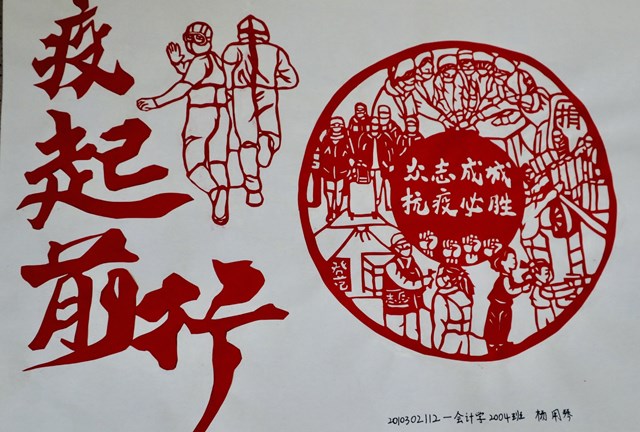 疫起前行
众志成城
抗疫必胜
登记
2010302112一会计学2004班